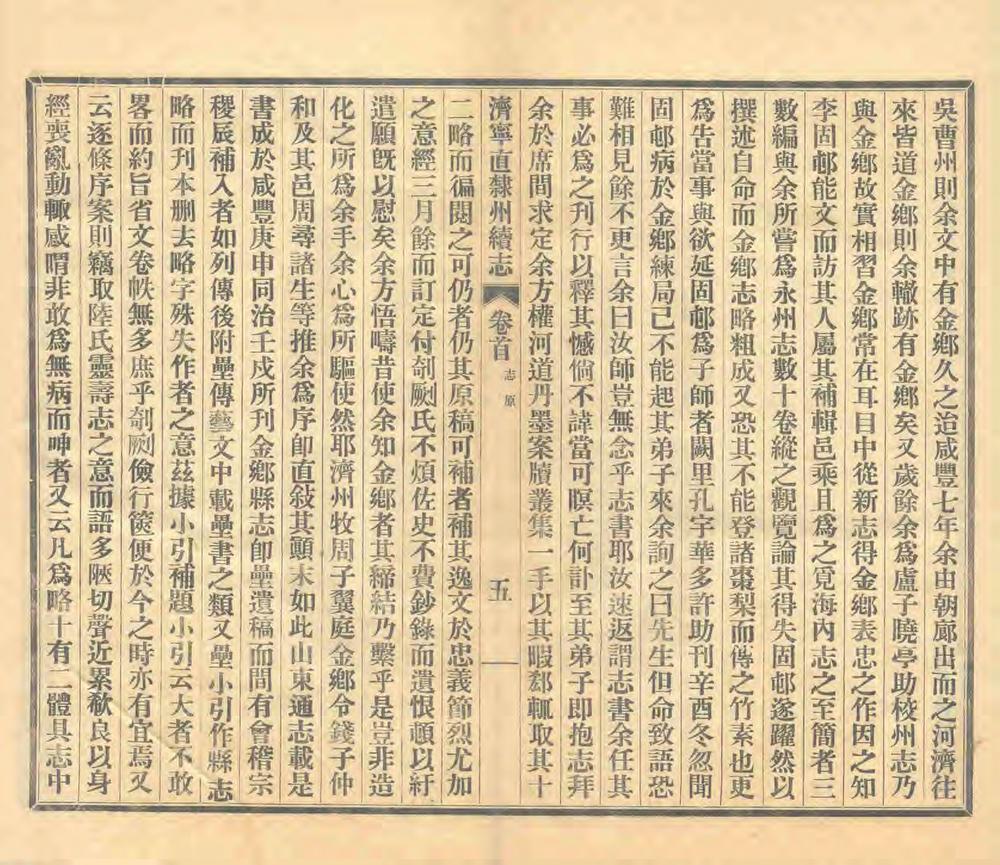 吳曹州則余文中有金鄉久之治咸豐七年余由朝廊出而之河濟往
來皆道金鄉則余轍跡有金鄉矣又歲餘余爲盧子曉亭助校州志乃
與金鄉故實相習金鄉常在耳目中從新志得金鄉表忠之作因之知
李固邨能文而訪其人屬其補輯邑乘且爲之覓海內志之至簡者三
數編與余所嘗爲永州志數十卷縱之觀覽論其得失固邨遂躍然以
撰述自命而金鄉志略粗成又恐其不能登諸棗梨而傳之竹素也更
爲告當事與欲延固邨爲子師者闕里孔宇華多許助刊辛酉冬忽聞
固邨病於金鄉練局已不能起其弟子來余詢之曰先生但命致語恐
難相見餘不更言余曰汝師豈無念乎志書耶汝速返謂志書余任其
事必爲之刊行以釋其憾倘不諱當可瞑亡何訃至其弟子即抱志拜
余於席間求定余方權河道丹墨案牘叢集一手以其暇郄輒取其十
濟寧直隸州續志 卷首 志原 五
二略而徧閱之可仍者仍其原稿可補者補其逸文於忠義節烈尤加
之意經三月餘而訂定付剞劂氏不煩佐史不費鈔錄而遺恨頓以紓
遺願旣以慰矣余方悟疇昔使余知金鄉者其締結乃繫乎是豈非造
化之所爲余手余心爲所驅使然耶濟州牧周子翼庭金鄉令錢子仲
和及其邑周尋諸生等推余爲序卽直敍其顚末如此山東通志載是
書成於咸豐庚申同治壬戌所刊金鄉縣志卽壘遺稿而間有會稽宗
稷辰補入者如列傳後附壘傳藝文中載壘書之類又壘小引作縣志
略而刊本删去略字殊失作者之意茲據小引補題小引云大者不敢
畧而約旨省文卷帙無多庶乎剞劂儉行篋便於今之時亦有宜焉又
云逐條序案則竊取陸氏靈壽志之意而語多陋切聲近累欷良以身
經喪亂動輒感喟非敢爲無病而呻者又云凡爲略十有二體具志中